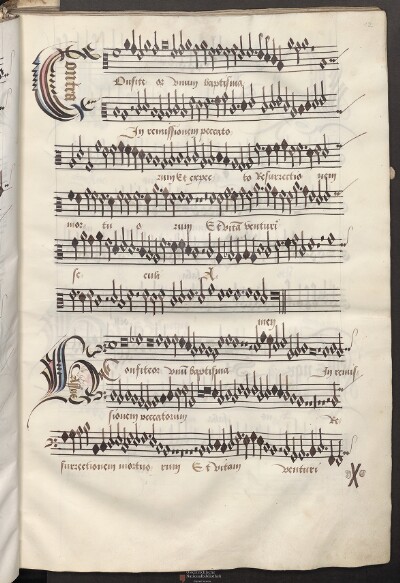 Contra
Onfite or vnum baptisma
In remissionem peccato
rum Et expec to Resurrectio nem
mor tu o rum Et vitā venturi
se culi A
men
Confiteor vnū baptisma In remis
sionem peccatorum Re
surrectionem mortuo rum Et vitam venturi